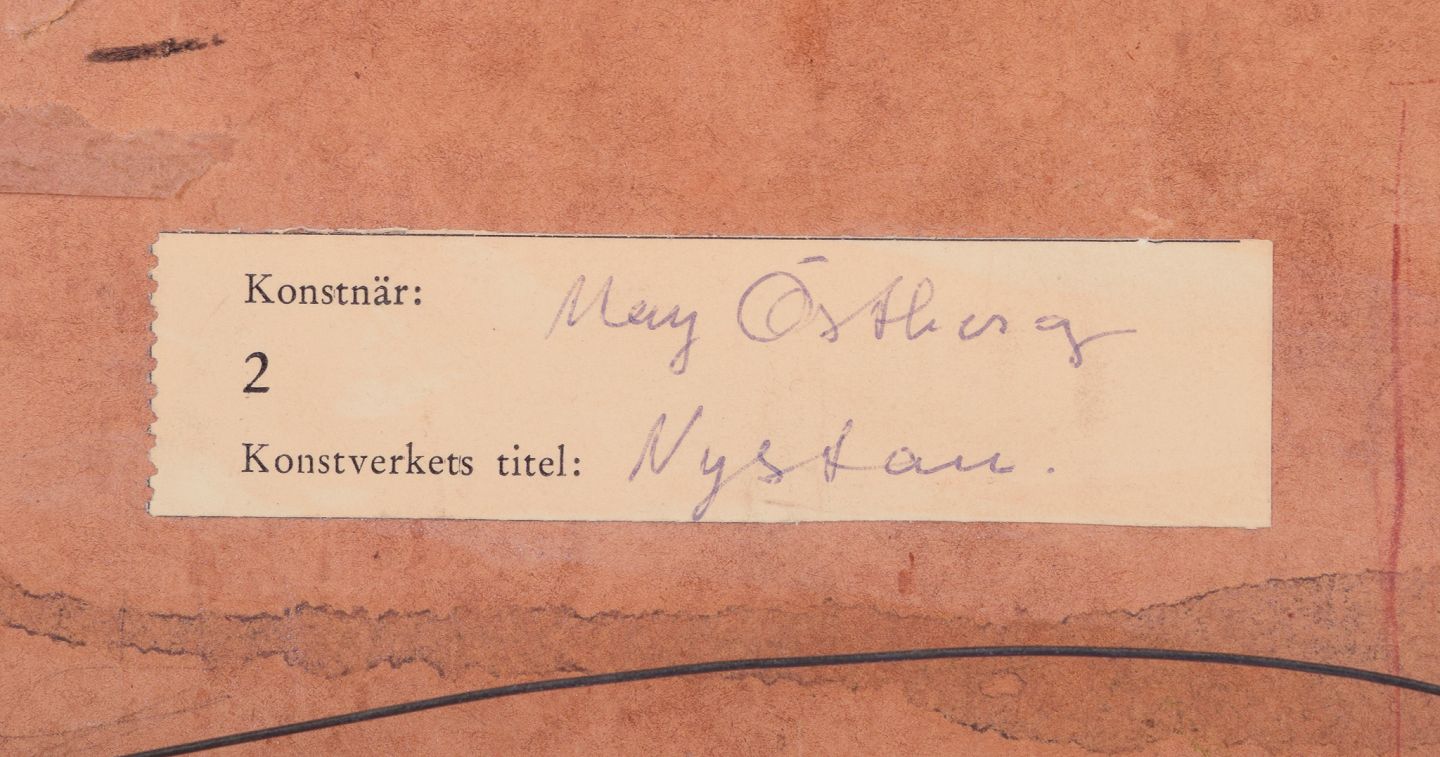 Konstnär: May Östberg
2
Konstverkets titel: Nystan.